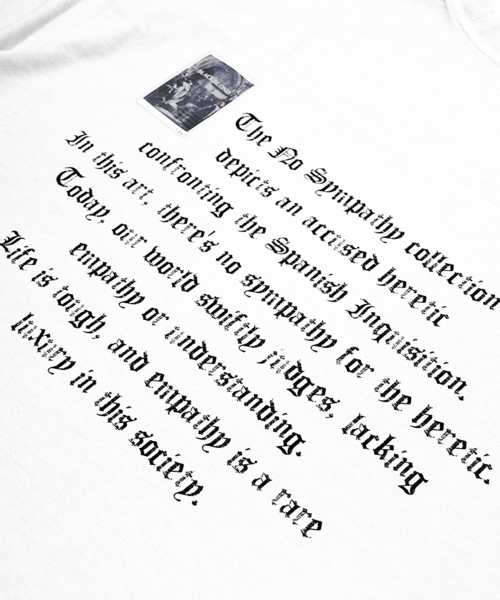 The No Sympathy collection
depicts an accused heretic
confronting the Spanish Inquisition.
In this art, there's no sympathy for the heretic.
Today, our world swiftly judges, lacking
empathy or understanding.
Life is tough, and empathy is a rare
luxury in this society.